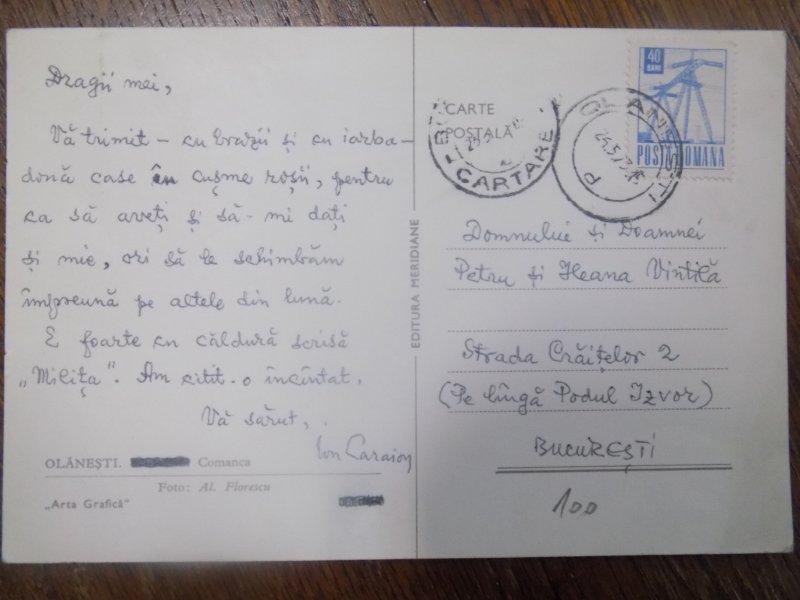 Dragii mei,
Vă trimit – cu brazii și cu iarba –
două case în cușme roșii, pentru
ca să aveți și să-mi dați
și mie, ori să le schimbăm
împreună pe altele din lună.
E foarte cu căldură scrisă
„Milița“. Am citit-o încîntat.
Vă sărut,
Ion Caraion
OLĂNEȘTI. Comanca
Foto: Al. Florescu
„Arta Grafică“
EDITURA MERIDIANE
CARTE
POȘTALĂ
CARTARE
OLANESTI
40
BANI
POSTA ROMANA
Domnului și Doamnei
Petru și Ileana Vintilă
Strada Crăițelor 2
(Pe lîngă Podul Izvor)
BUCUREȘTI
100